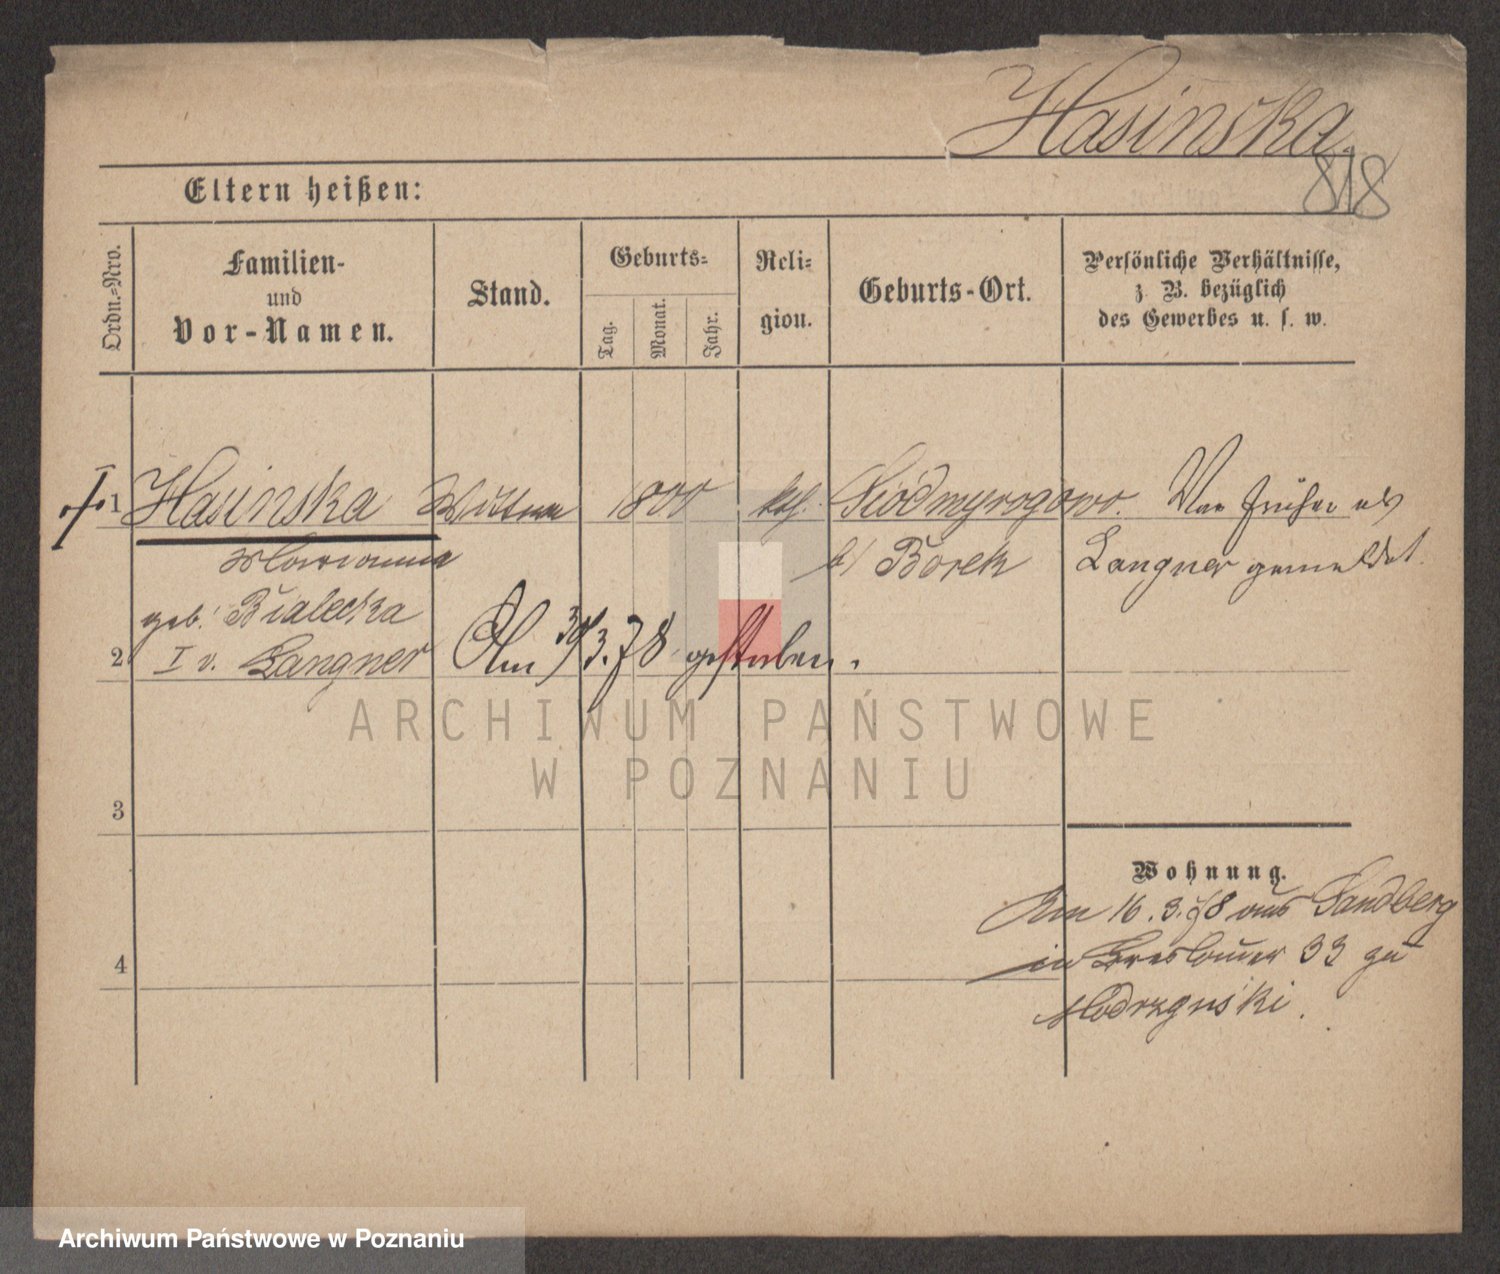 Hasinska.
818
Eltern heißen:
Ordn.-Nro.
Familien-
und
Vor-Namen.
Stand.
Geburts-
Tag.
Monat.
Jahr.
Reli-
gion.
Geburts-Ort.
Persönliche Verhältnisse,
z. B. bezüglich
des Gewerbes u. s. w.
1 Hasinska Wittwe 1800 kath. Siódmyrogowo. War früher als
Marianna b/ Borek Langner gemeldet.
geb. Bialecka
2 I v. Langner Am 30/3.78 gestorben.
ARCHIWUM PAŃSTWOWE
W POZNANIU
3
Wohnung.
Am 16.3.78 aus Sandberg
in Breslauer 33 zu
4
Modrzynski.
Archiwum Państwowe w Poznaniu